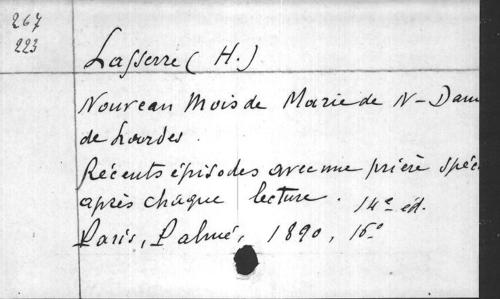 267
223
Lasserre (H.)
Nouveau Mois de Marie de N-Dam
de Lourdes.
Récents épisodes avec une prière spéc
après chaque lecture. 14e éd.
Paris, Palmé, 1890, 16o